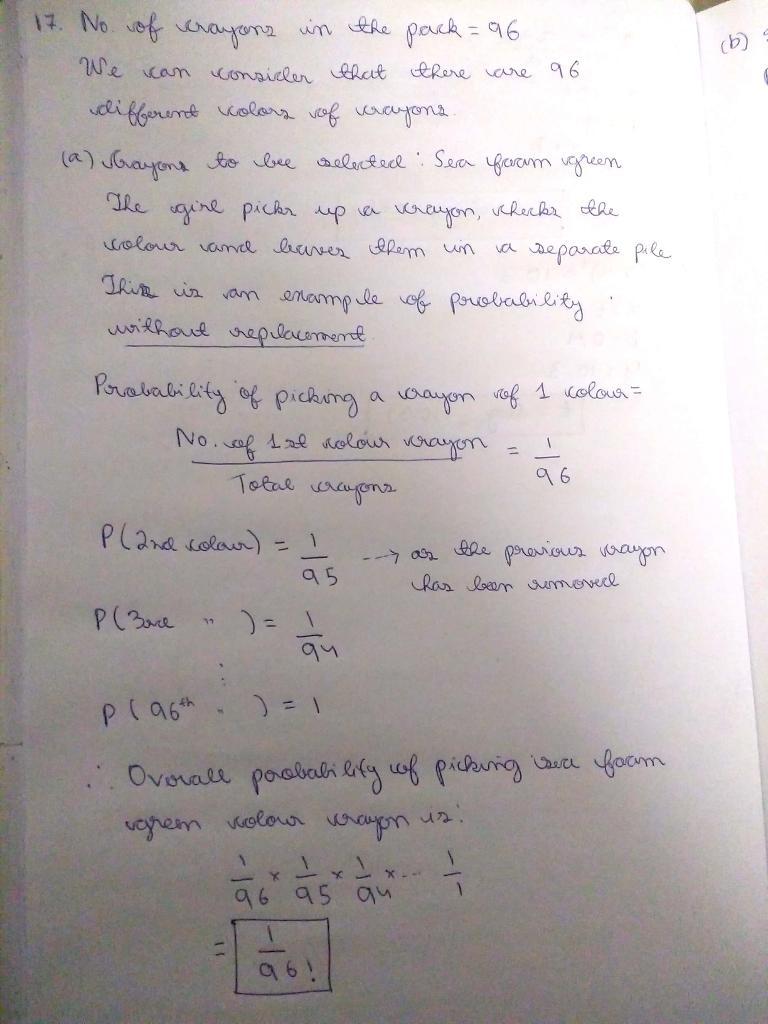 17. No. of crayons in the pack = 96
We can consider that there are 96
different colors of crayons.
(a) Crayons to be selected : Sea foam green
The girl picks up a crayon, checks the
colour and leaves them in a separate pile
This is an example of probability
without replacement.
Probability of picking a crayon of 1 colour =
No. of 1st colour crayon / Total crayons = 1/96
P(2nd colour) = 1/95 --→ as the previous crayon
has been removed
P(3rd " ) = 1/94
⋮
P(96th " ) = 1
∴ Overall probability of picking sea foam
green colour crayon is:
1/96 × 1/95 × 1/94 × ... 1/1
= 1/96!
(b)